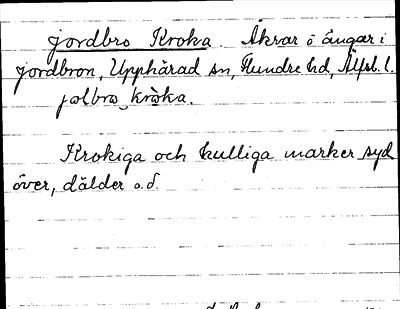 jordbro Kroka. Åkrar o ängar i
jordbron, Upphärad sn, Flundre hd, Älfsb. l.
jolbro kròka.
Krokiga och kulliga marker syd
över, dälder o.d.